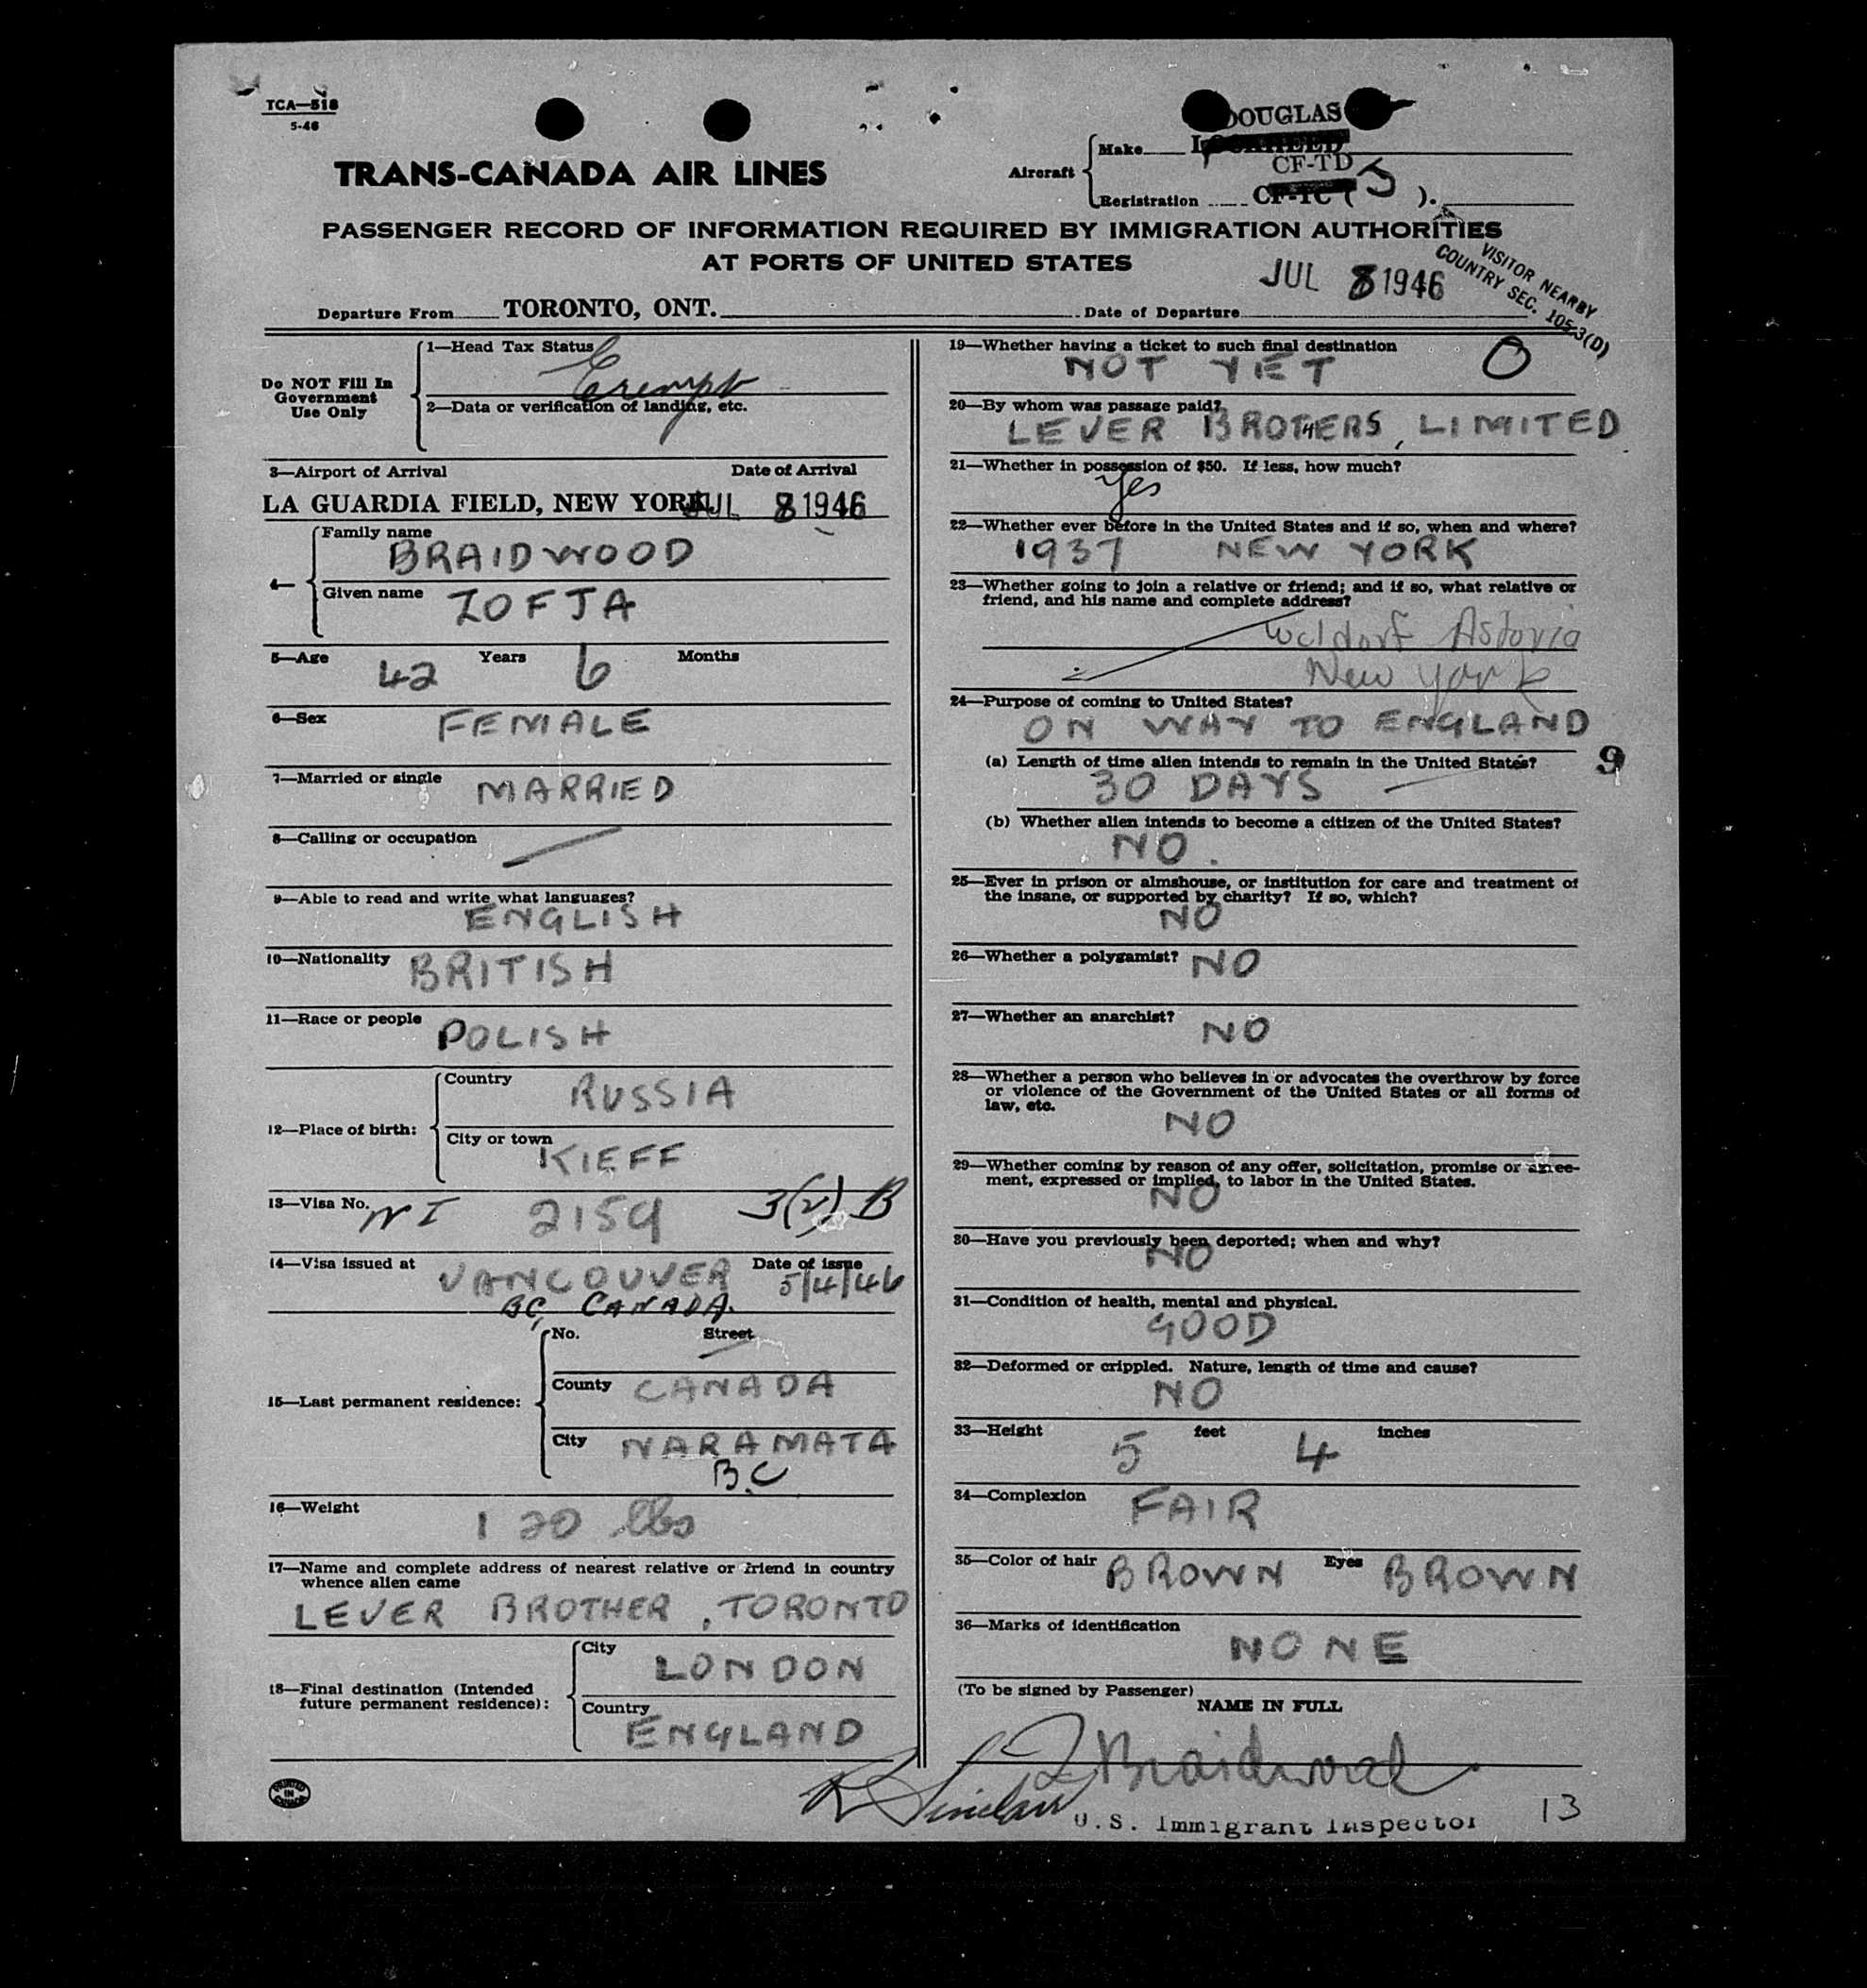 TCA—518
5-46
TRANS-CANADA AIR LINES
DOUGLAS
Aircraft
Make
LOCKHEED
CF-TD
Registration CF-TC ( J ).
PASSENGER RECORD OF INFORMATION REQUIRED BY IMMIGRATION AUTHORITIES
AT PORTS OF UNITED STATES
VISITOR NEARBY
COUNTRY SEC. 105-3(D)
JUL 8 1946
Departure From TORONTO, ONT. Date of Departure
Do NOT Fill In
Government
Use Only
1—Head Tax Status
Exempt
2—Data or verification of landing, etc.
3—Airport of Arrival Date of Arrival
LA GUARDIA FIELD, NEW YORK. JUL 8 1946
4—
Family name
BRAIDWOOD
Given name ZOFJA
5—Age 42 Years 6 Months
6—Sex FEMALE
7—Married or single MARRIED
8—Calling or occupation
9—Able to read and write what languages?
ENGLISH
10—Nationality BRITISH
11—Race or people POLISH
12—Place of birth:
Country RUSSIA
City or town
KIEFF
13—Visa No. NI 2159 3(2) B
14—Visa issued at VANCOUVER Date of issue 5/4/46
BC, CANADA.
15—Last permanent residence:
No. Street
County CANADA
City NARAMATA
B.C
16—Weight 120 lbs
17—Name and complete address of nearest relative or friend in country
whence alien came
LEVER BROTHER, TORONTO
18—Final destination (Intended
future permanent residence):
City
LONDON
Country
ENGLAND
PRINTED
IN
CANADA
19—Whether having a ticket to such final destination
NOT YET O
20—By whom was passage paid?
LEVER BROTHERS, LIMITED
21—Whether in possession of $50. If less, how much?
Yes
22—Whether ever before in the United States and if so, when and where?
1937 NEW YORK
23—Whether going to join a relative or friend; and if so, what relative or
friend, and his name and complete address?
Waldorf Astoria
New York
24—Purpose of coming to United States?
ON WAY TO ENGLAND
9
(a) Length of time alien intends to remain in the United States?
30 DAYS
(b) Whether alien intends to become a citizen of the United States?
NO.
25—Ever in prison or almshouse, or institution for care and treatment of
the insane, or supported by charity? If so, which?
NO
26—Whether a polygamist? NO
27—Whether an anarchist? NO
28—Whether a person who believes in or advocates the overthrow by force
or violence of the Government of the United States or all forms of
law, etc.
NO
29—Whether coming by reason of any offer, solicitation, promise or agree-
ment, expressed or implied, to labor in the United States.
NO
30—Have you previously been deported; when and why?
NO
31—Condition of health, mental and physical.
GOOD
32—Deformed or crippled. Nature, length of time and cause?
NO
33—Height 5 feet 4 inches
34—Complexion FAIR
35—Color of hair BROWN Eyes BROWN
36—Marks of identification
NONE
(To be signed by Passenger)
NAME IN FULL
Z Braidwood
R Sinclair
U.S. Immigrant Inspector
13